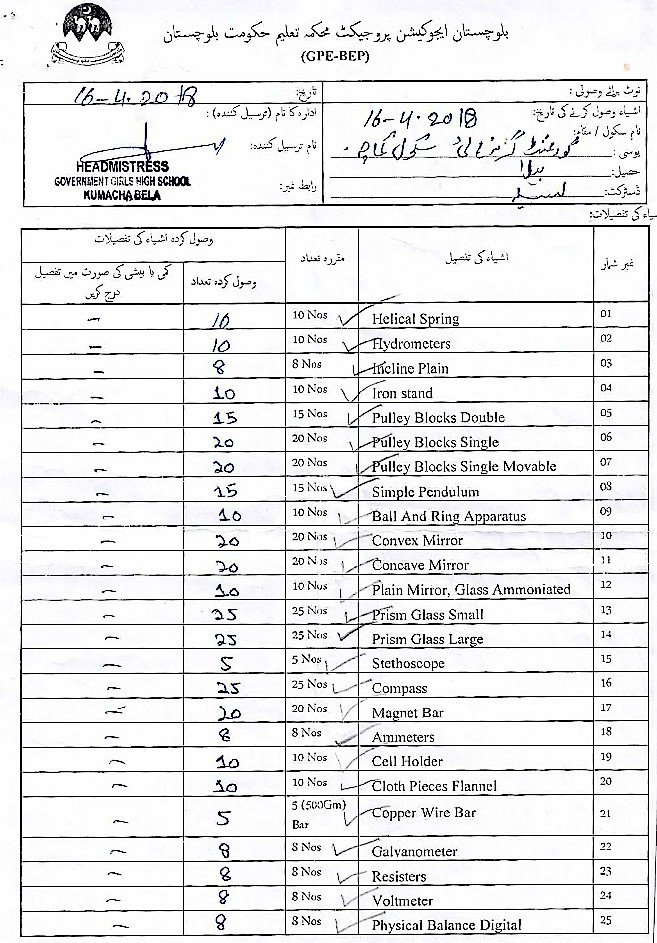 بلوچستان ایجوکیشن پروجیکٹ محکمہ تعلیم حکومت بلوچستان
(GPE-BEP)
نوٹ برائے وصولی :
اشیاء وصول کرنے کی تاریخ: 16-4-2018
نام سکول / مقام: گورنمنٹ گرلز ہائی سکول کماچہ
یوسی:
تحصیل: بیلا
ڈسٹرکٹ: لسبیلہ
تاریخ: 16-4-2018
ادارہ کا نام (ترسیل کنندہ) :
نام ترسیل کنندہ:
HEADMISTRESS
GOVERNMENT GIRLS HIGH SCHOOL
KUMACHA BELA
رابطہ نمبر:
اشیاء کی تفصیلات:
نمبر شمار اشیاء کی تفصیل مقررہ تعداد وصول کردہ اشیاء کی تفصیلات
وصول کردہ تعداد کمی یا بیشی کی صورت میں تفصیل درج کریں
– 10 10 Nos Helical Spring 01
– 10 10 Nos Hydrometers 02
– 8 8 Nos Incline Plain 03
– 10 10 Nos Iron stand 04
– 15 15 Nos Pulley Blocks Double 05
– 20 20 Nos Pulley Blocks Single 06
– 20 20 Nos Pulley Blocks Single Movable 07
– 15 15 Nos Simple Pendulum 08
– 10 10 Nos Ball And Ring Apparatus 09
– 20 20 Nos Convex Mirror 10
– 20 20 Nos Concave Mirror 11
– 10 10 Nos Plain Mirror, Glass Ammoniated 12
– 25 25 Nos Prism Glass Small 13
– 25 25 Nos Prism Glass Large 14
– 5 5 Nos Stethoscope 15
– 25 25 Nos Compass 16
– 20 20 Nos Magnet Bar 17
– 8 8 Nos Ammeters 18
– 10 10 Nos Cell Holder 19
– 10 10 Nos Cloth Pieces Flannel 20
– 5 5 (500Gm) Bar Copper Wire Bar 21
– 8 8 Nos Galvanometer 22
– 8 8 Nos Resisters 23
– 8 8 Nos Voltmeter 24
– 8 8 Nos Physical Balance Digital 25